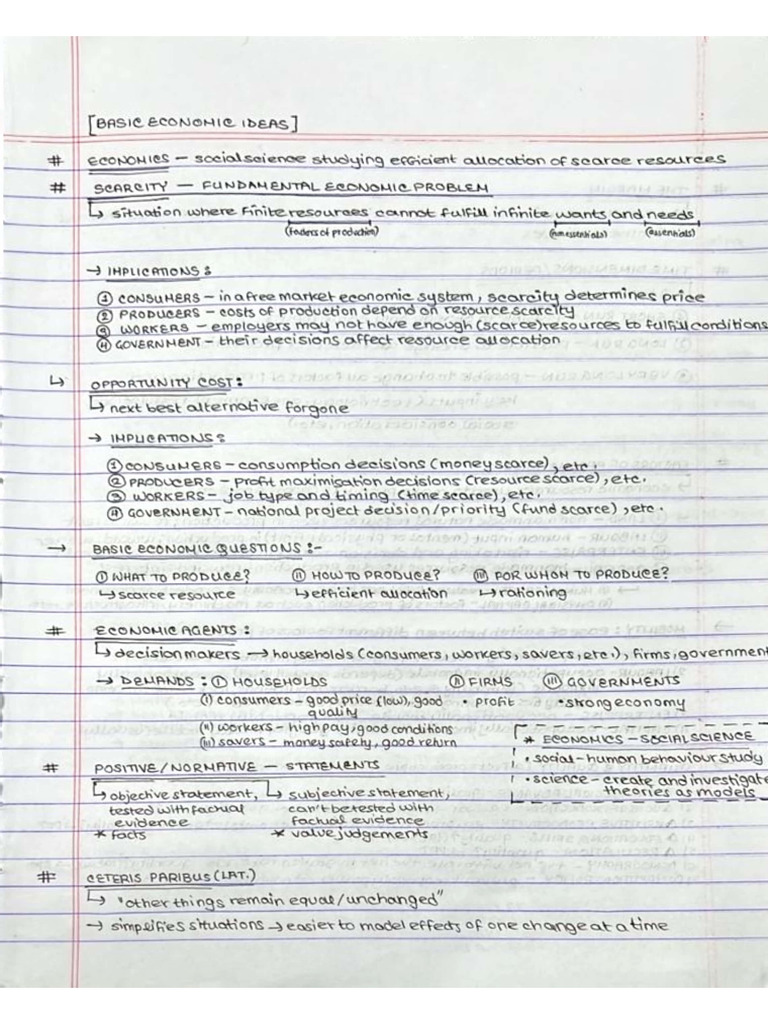 [BASIC ECONOMIC IDEAS]
# ECONOMICS — social science studying efficient allocation of scarce resources
# SCARCITY — FUNDAMENTAL ECONOMIC PROBLEM
↳ situation where finite resources cannot fulfill infinite wants and needs
(factors of production) (non essentials) (essentials)
→ IMPLICATIONS:
① CONSUMERS — in a free market economic system, scarcity determines price
② PRODUCERS — costs of production depend on resource scarcity
③ WORKERS — employers may not have enough (scarce) resources to fulfill conditions
④ GOVERNMENT — their decisions affect resource allocation
↳ OPPORTUNITY COST:
↳ next best alternative forgone
→ IMPLICATIONS:
① CONSUMERS - consumption decisions (money scarce), etc.
② PRODUCERS - profit maximisation decisions (resource scarce), etc.
③ WORKERS - job type and timing (time scarce), etc.
④ GOVERNMENT - national project decision/priority (fund scarce), etc.
→ BASIC ECONOMIC QUESTIONS:-
(i) WHAT TO PRODUCE? (ii) HOW TO PRODUCE? (iii) FOR WHOM TO PRODUCE?
↳ scarce resource ↳ efficient allocation ↳ rationing
# ECONOMIC AGENTS:
↳ decision makers → households (consumers, workers, savers, etc.), firms, government
→ DEMANDS: (i) HOUSEHOLDS (ii) FIRMS (iii) GOVERNMENTS
(i) consumers - good price (low), good quality • profit • strong economy
(ii) workers - high pay, good conditions
(iii) savers - money safety, good return
* ECONOMICS - SOCIAL SCIENCE
• social - human behaviour study
• science - create and investigate
theories as models
# POSITIVE/NORMATIVE — STATEMENTS
↳ objective statement, ↳ subjective statement,
tested with factual can't be tested with
evidence factual evidence
* facts * value judgements
# CETERIS PARIBUS (LAT.)
↳ "other things remain equal/unchanged"
→ simplifies situations → easier to model effects of one change at a time